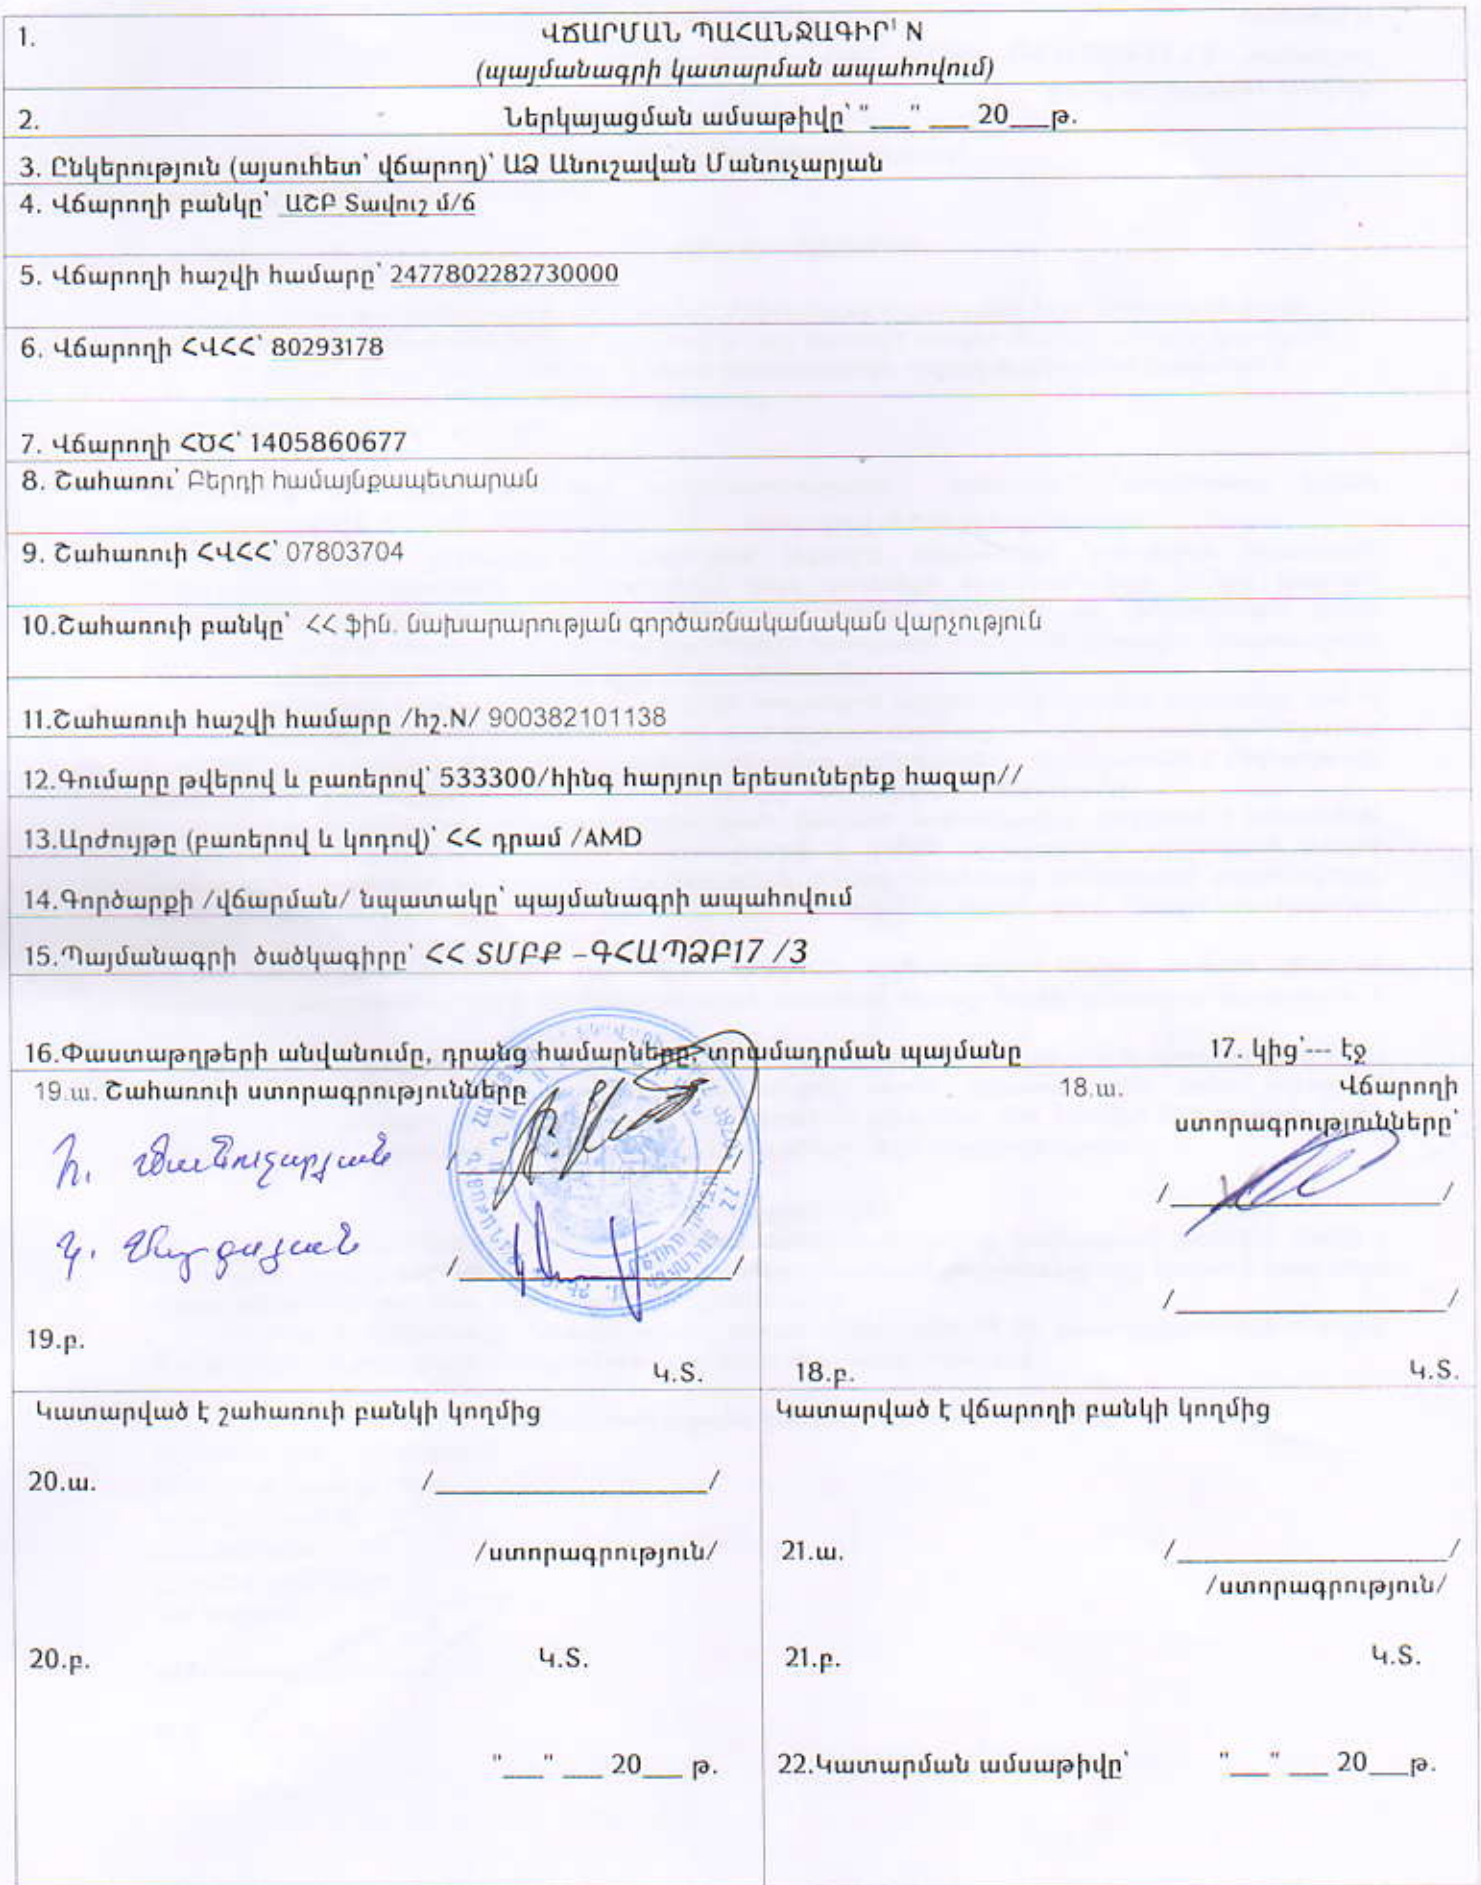 1. ՎՃԱՐՄԱՆ ՊԱՀԱՆՋԱԳԻՐ¹ N
(պայմանագրի կատարման ապահովում)
2. Ներկայացման ամսաթիվը՝ "___" ___ 20___թ.
3. Ընկերություն (այսուհետ՝ վճարող)՝ ԱՁ Անուշավան Մանուչարյան
4. Վճարողի բանկը՝ ԱՇԲ Տավուշ մ/ճ
5. Վճարողի հաշվի համարը՝ 2477802282730000
6. Վճարողի ՀՎՀՀ՝ 80293178
7. Վճարողի ՀԾՀ՝ 1405860677
8. Շահառու՝ Բերդի համայնքապետարան
9. Շահառուի ՀՎՀՀ՝ 07803704
10.Շահառուի բանկը՝ ՀՀ ֆին. նախարարության գործառնականական վարչություն
11.Շահառուի հաշվի համարը /հշ.N/ 900382101138
12.Գումարը թվերով և բառերով՝ 533300/հինգ հարյուր երեսուներեք հազար//
13.Արժույթը (բառերով և կոդով)՝ ՀՀ դրամ /AMD
14.Գործարքի /վճարման/ նպատակը՝ պայմանագրի ապահովում
15.Պայմանագրի ծածկագիրը՝ ՀՀ ՏՄԲՔ –ԳՀԱՊՁԲ17 /3
16.Փաստաթղթերի անվանումը, դրանց համարները, տրամադրման պայմանը 17. կից՝--- էջ
19.ա. Շահառուի ստորագրությունները 18.ա. Վճարողի
ստորագրությունները՝
Հ. Մանուչարյան /__________/
/__________/
/__________/
/__________/
19.բ.
Կ.Տ. 18.բ. Կ.Տ.
Կատարված է շահառուի բանկի կողմից
Կատարված է վճարողի բանկի կողմից
20.ա. /__________/
/ստորագրություն/ 21.ա. /__________/
/ստորագրություն/
20.բ. Կ.Տ. 21.բ. Կ.Տ.
"___" ___ 20___ թ. 22.Կատարման ամսաթիվը՝ "___" ___ 20___թ.